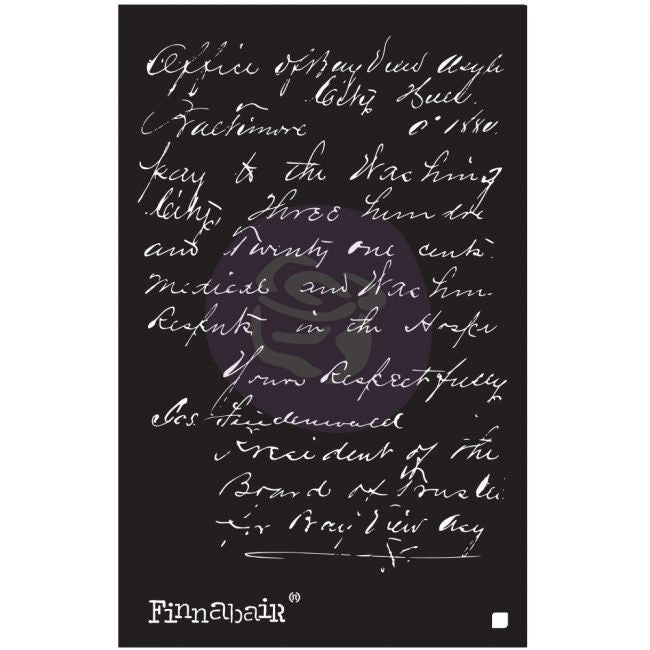 Office of Bay View Asyl
City Hall.
Baltimore 0° 1880.
pay to the Washing
City, Three hundre
and Twenty one cents.
Medical and Washin
Respects in the Hospi
Yours Respectfully
Jas. Lindenwald
President of the
Board of Trustee
for Bay View Asy
Finnabair ®